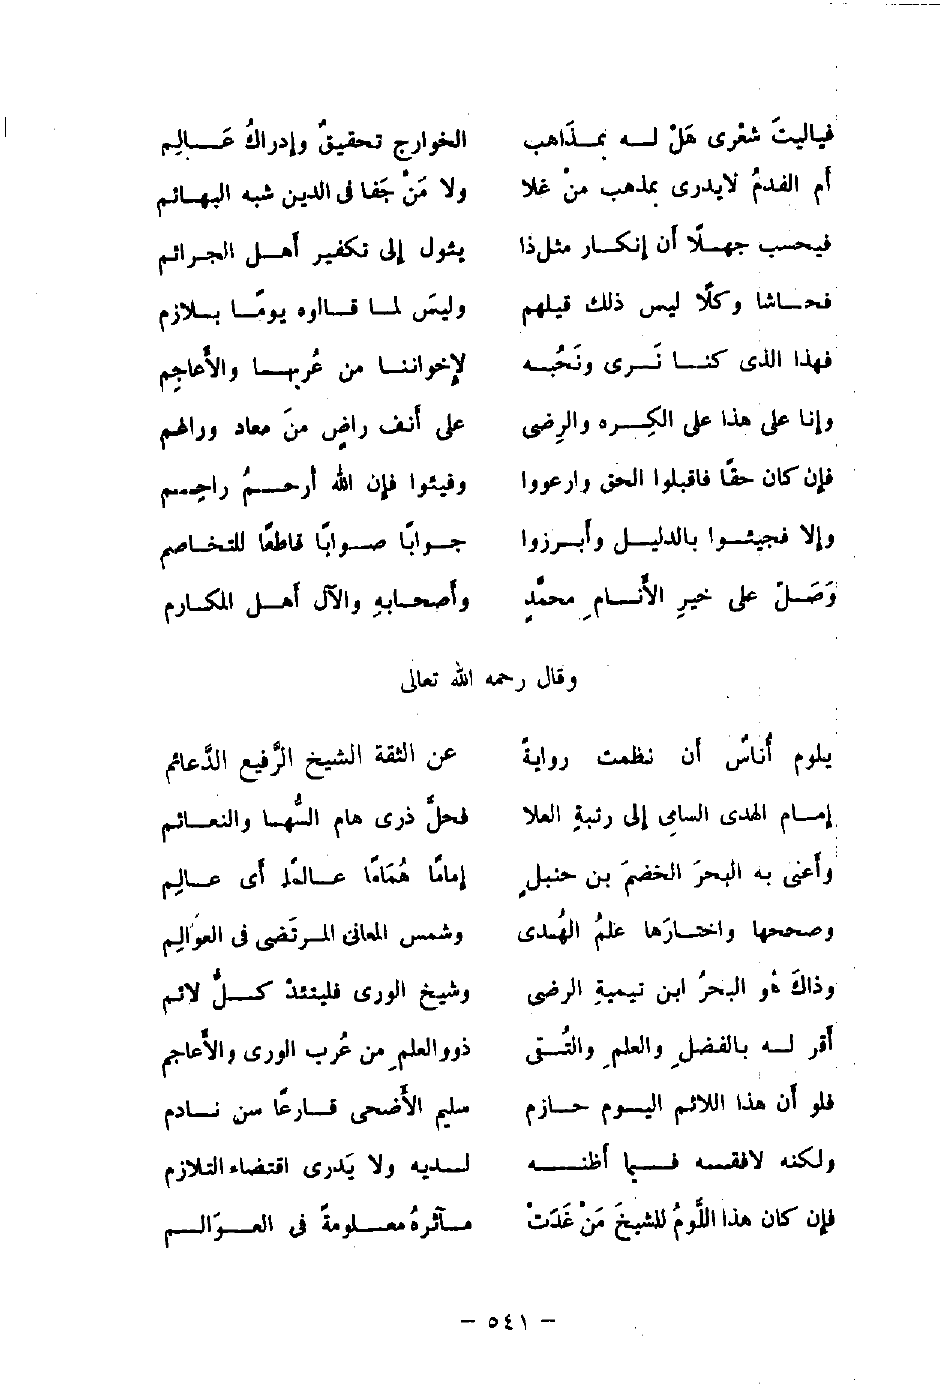 فياليتَ شعْرى هَلْ لــه بمــذَاهب الخوارج تحقيقٌ وإدراكُ عَــالِم
أم الفدمُ لايدرى بمذهب منْ غلا ولا مَنْ جَفا فى الدين شبه البهائم
فيحسب جهلًا أن إنكار مثل ذا يئول إلى تكفير أهل الجرائم
فحاشا وكلًّا ليس ذلك قيلهم وليسَ لما قالوه يومًا بلازم
فهذا الذى كنا نَرى ونُحبُه لإخواننا من عُربها والأَعاجم
وإنا على هذا على الكِره والرِضى على أنف راضٍ منَ معاد وراغم
فإن كان حقًا فاقبلوا الحق وارعووا وفيئوا فإن الله أرحمُ راحِم
وإلا فجيئوا بالدليل وأَبرزوا جوابًا صوابًا قاطعًا للتخاصم
وَصَلّ على خيرِ الأَنامِ محمَّدٍ وأصحابهِ والآل أهل المكارم
وقال رحمه الله تعالى
يلوم أُناسٌ أن نظمت روايةً عن الثقة الشيخ الرَّفيع الدَّعائم
إمام الهدى السامى إلى رتبةِ العلا فحلَّ ذرى هام السُّها والنعائم
وأَعنى به البحرَ الخضمَ بن حنبلٍ إمامًا هُمَامًا عالمًا أى عالِم
وصححها واختارَها علمُ الهُدى وشمس المعانى المرتَضى فى العوَالِم
وذاكَ هُو البحرُ ابن تيميةِ الرضى وشيخ الورى فليتئدْ كلُّ لائم
أَقر له بالفضلِ والعلمِ والتُقى ذوو العلمِ من عُرب الورى والأَعاجم
فلو أن هذا اللائم اليوم حازم سليم الأَضحى قارعًا سن نادم
ولكنه لافقسه فيما أظنه لديه ولا يَدرى اقتضاء التلازم
فإن كان هذا اللَّومُ للشيخَ مَنْ غَدَتْ مآثرهُ معلومةً فى العوَالم
– ٥٤١ –